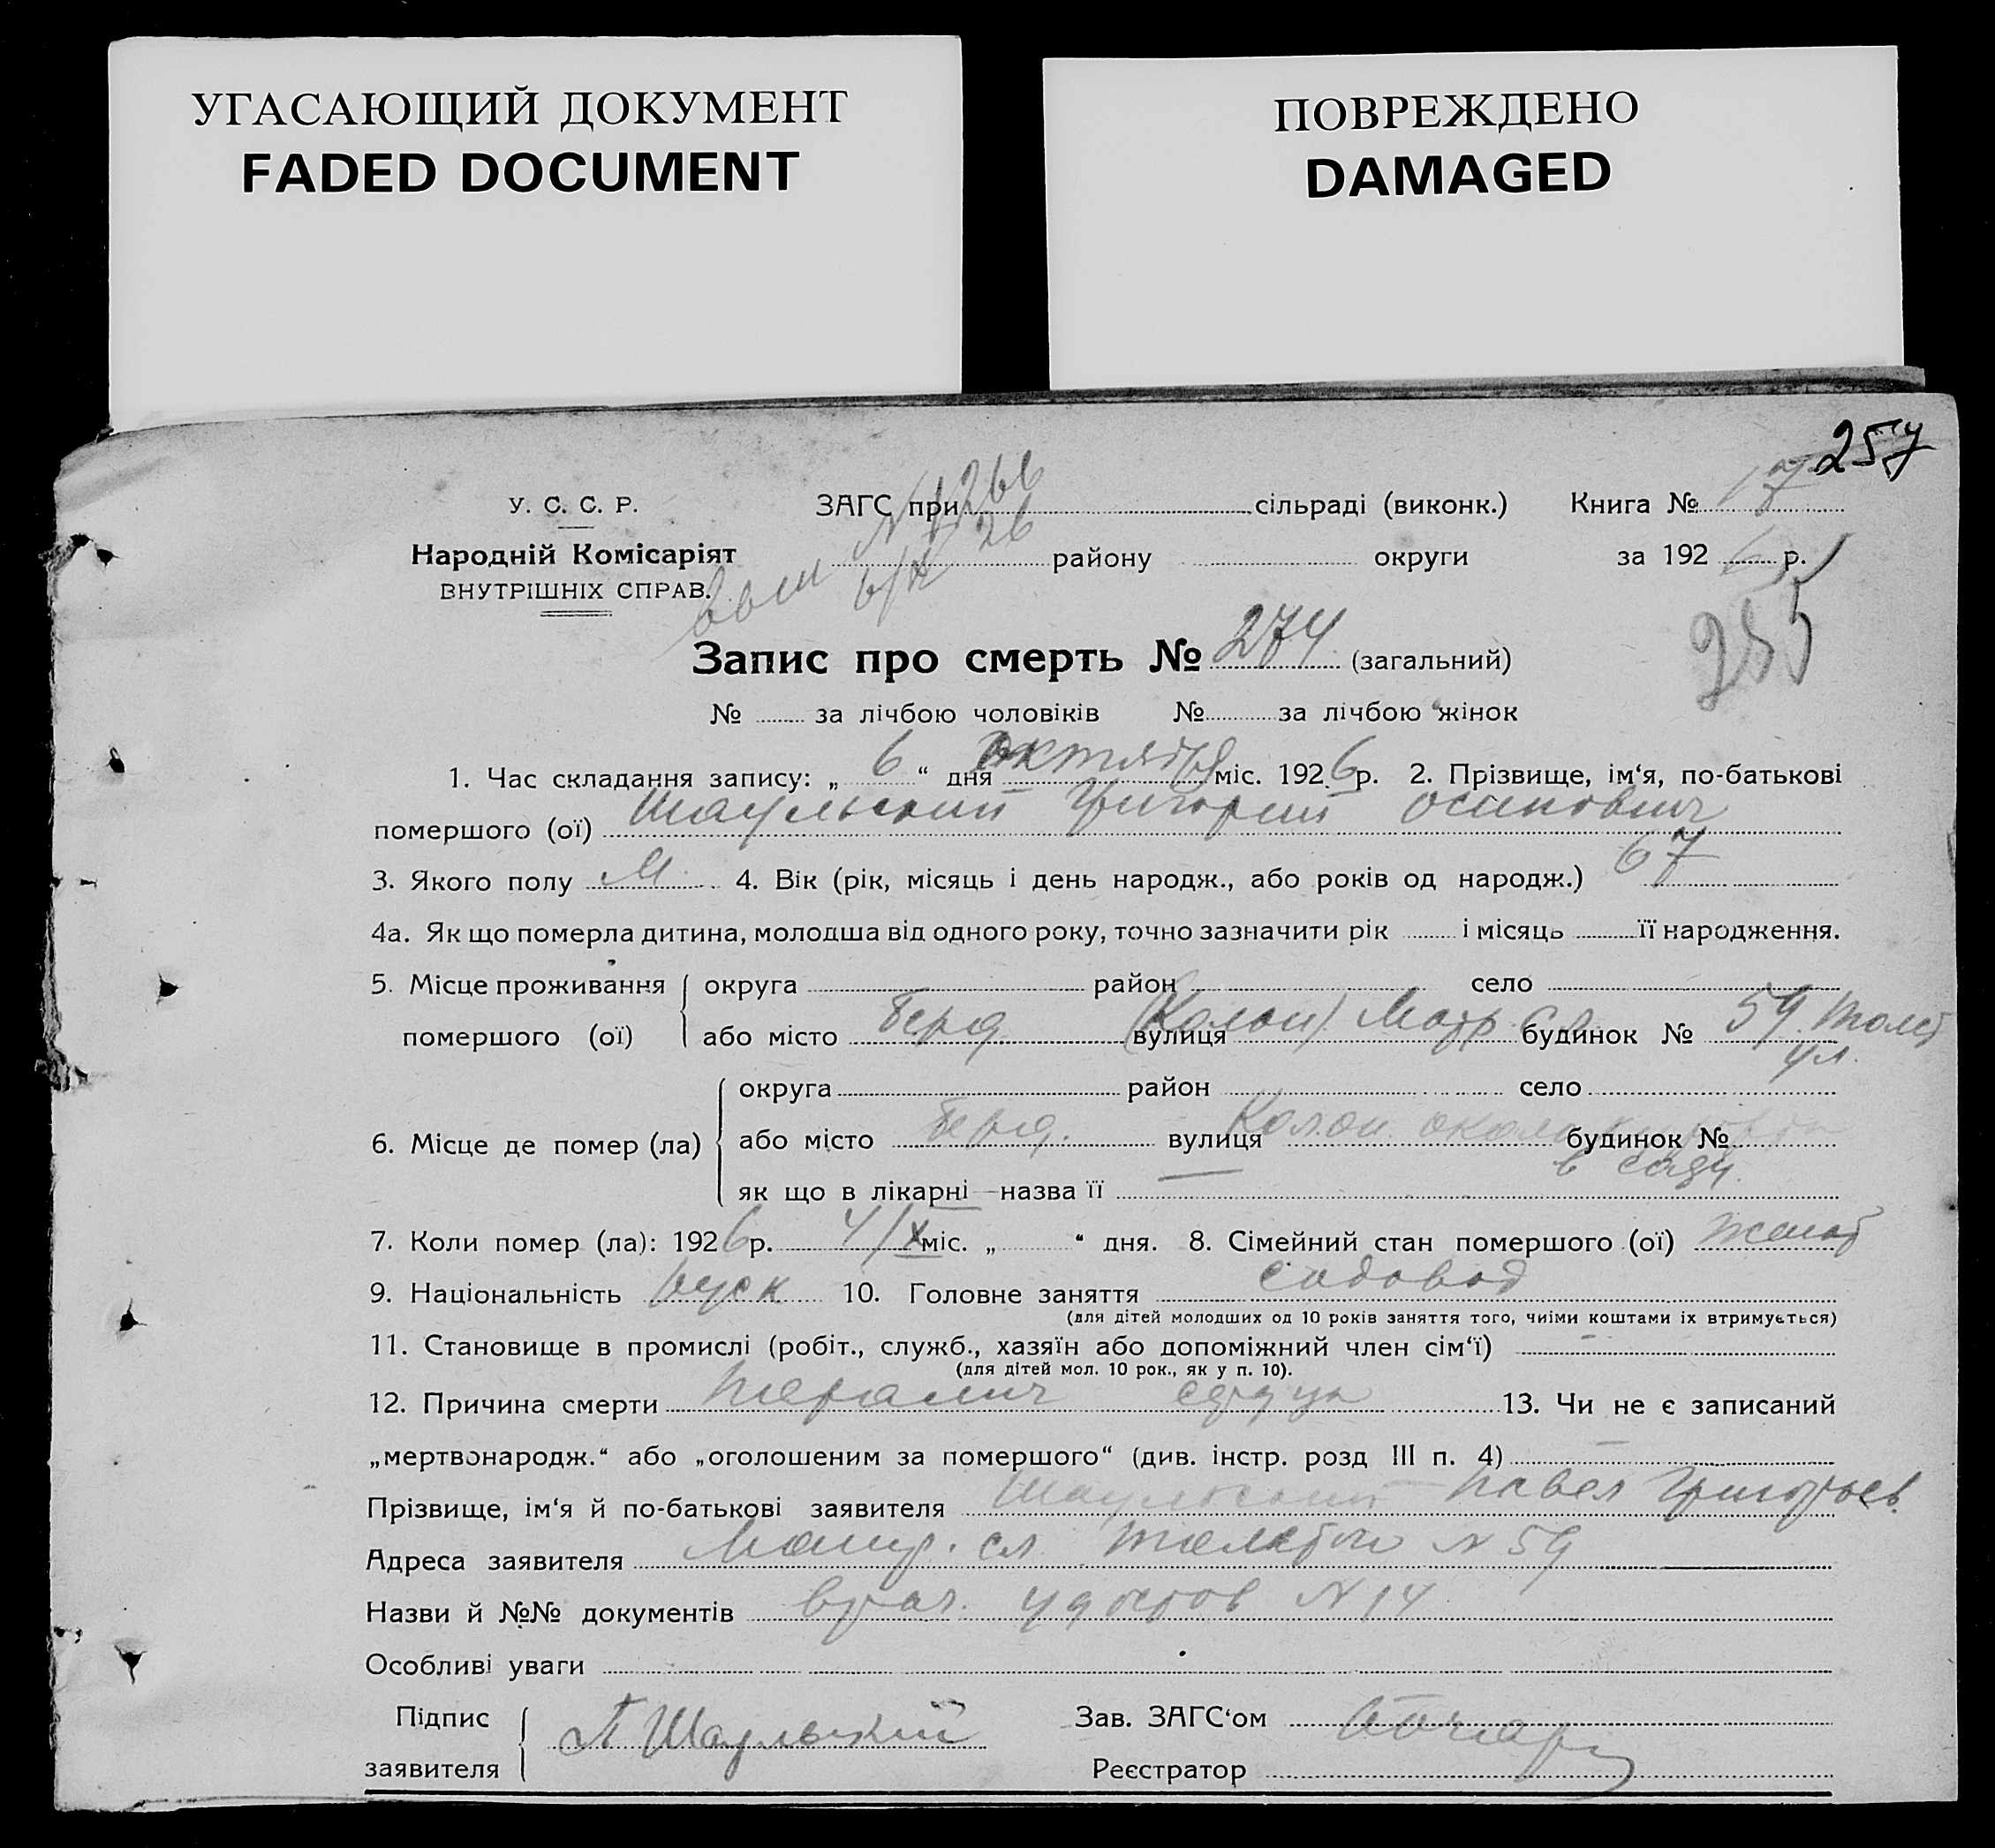 УГАСАЮЩИЙ ДОКУМЕНТ
FADED DOCUMENT
ПОВРЕЖДЕНО
DAMAGED
257
У. С. С. Р. ЗАГС при сільраді (виконк.) Книга № 17
№ 266
Народній Комісаріят району округи за 1926 р.
6/X 26
ВНУТРІШНІХ СПРАВ.
255
Запис про смерть № 274 (загальний)
№ за лічбою чоловіків № за лічбою жінок
1. Час складання запису: „ 6 “ дня октября міс. 1926 р. 2. Прізвище, ім‘я, по-батькові
помершого (ої) Шаульский Григорий Осипович
3. Якого полу М. 4. Вік (рік, місяць і день народж., або років од народж.) 67
4а. Як що померла дитина, молодша від одного року, точно зазначити рік і місяць її народження.
5. Місце проживання округа район село
помершого (ої) або місто Берд. вулиця (Колон) Матр сл будинок № 59 Толст
ул.
округа район село
6. Місце де помер (ла) або місто Берд. вулиця Колон. около будинок №
в саду.
як що в лікарні — назва її —
7. Коли помер (ла): 1926 р. 4/X міс. „ “ дня. 8. Сімейний стан помершого (ої) женат
9. Національність руск 10. Головне заняття садовод
(для дітей молодших од 10 років заняття того, чиїми коштами їх втримується)
11. Становище в промислі (робіт., служб., хазяїн або допоміжний член сім‘ї) —
(для дітей мол. 10 рок., як у п. 10).
12. Причина смерти паралич сердца 13. Чи не є записаний
„мертвонародж.“ або „оголошеним за помершого“ (див. інстр. розд III п. 4) —
Прізвище, ім‘я й по-батькові заявителя Шаульский Павел Григорьев.
Адреса заявителя сл. Толстого № 59
Назви й №№ документів врач. удостов № 14
Особливі уваги
Підпис П Шаульский Зав. ЗАГС‘ом
заявителя Реєстратор